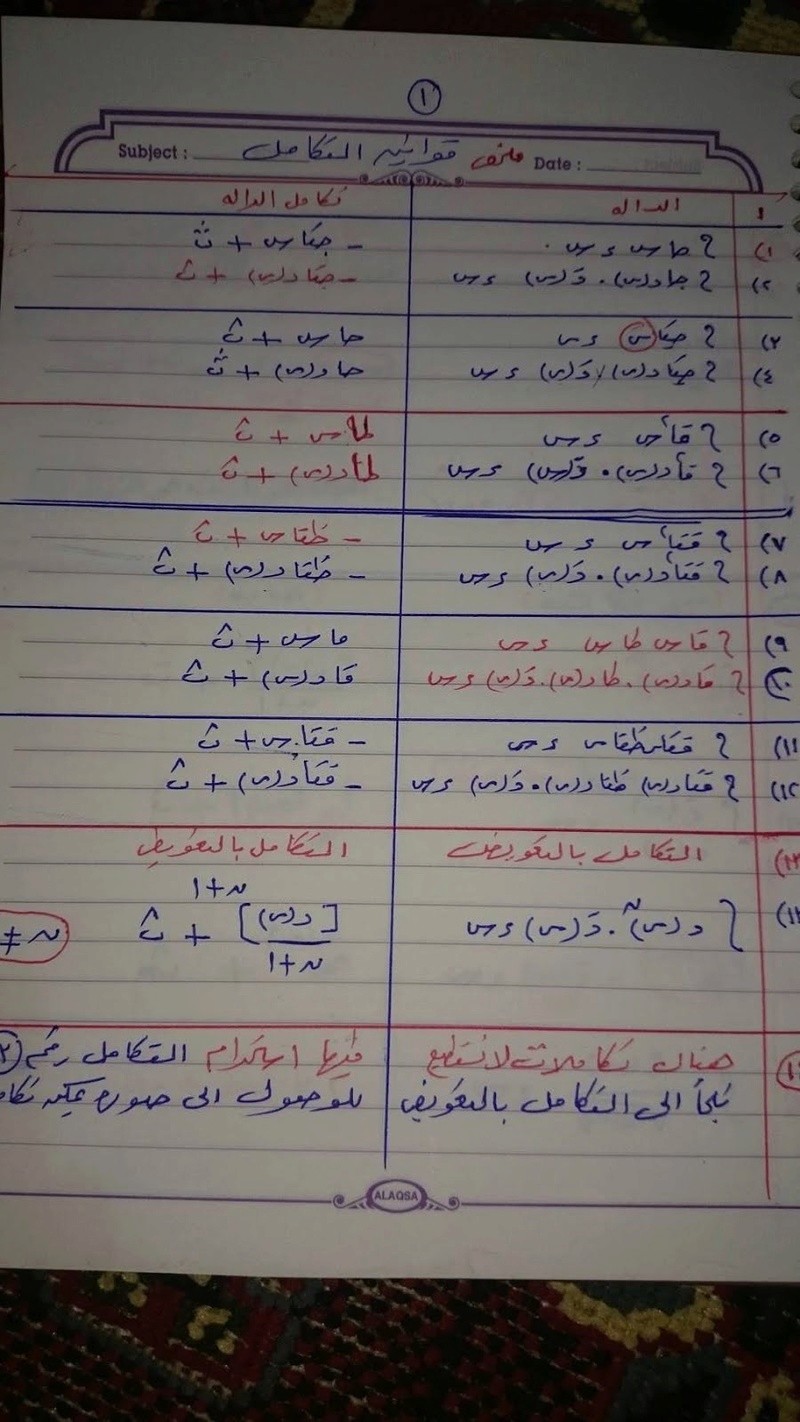 ١
Subject : ملخص قوانين التكامل Date :
م الداله تكامل الداله
١) ∫ حاس ءس - حتاس + ث
٢) ∫ حا د(س) . دَ(س) ءس - حتا د(س) + ث
٣) ∫ حتاس ءس حاس + ث
٤) ∫ حتا د(س) دَ(س) ءس حا د(س) + ث
٥) ∫ قا٢س ءس طاس + ث
٦) ∫ قا٢ د(س) . دَ(س) ءس طا د(س) + ث
٧) ∫ قتا٢س ءس - ظتاس + ث
٨) ∫ قتا٢ د(س) . دَ(س) ءس - ظتا د(س) + ث
٩) ∫ قاس طاس ءس قاس + ث
١٠) ∫ قا د(س) . طا د(س) . دَ(س) ءس قا د(س) + ث
١١) ∫ قتاس ظتاس ءس - قتاس + ث
١٢) ∫ قتا د(س) ظتا د(س) . دَ(س) ءس - قتا د(س) + ث
التكامل بالتعويض التكامل بالتعويض
∫ د(س)ن . دَ(س) ءس [د(س)]ن+١ / ن+١ + ث ن ≠
هناك تكاملات لا نستطيع فيها استخدام التكامل رقم
نلجأ الى التكامل بالتعويض للوصول الى صوره يمكن
ALAQSA